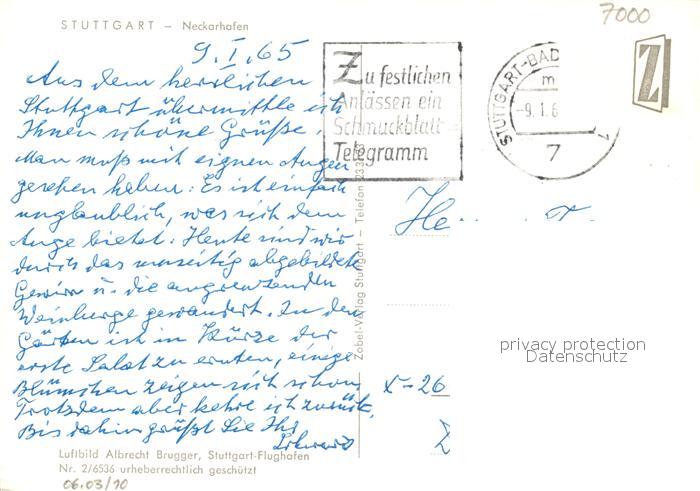 STUTTGART – Neckarhafen
7000
9.I.65
Aus dem herrlichen
Stuttgart übermittle ich
Ihnen schöne Grüße.
Man muß mit eignen Augen
gesehen haben: Es ist einfach
unglaublich, was sich dem
Auge bietet. Heute sind wir
durch das umseitig abgebildete
Gewirr u. die angrenzenden
Weinberge gewandert. In den
Gärten ist in Kürze der
erste Salat zu ernten, einige
Blümchen zeigen sich schon,
Trotzdem aber kehre ich zurück.
Bis dahin grüßt Sie Ihr
Zu festlichen
Anlässen ein
Schmuckblatt-
Telegramm
STUTTGART-BAD
m
-9.1.6
7
1
Z
He
X-26
privacy protection
Datenschutz
Zobel-Verlag Stuttgart – Telefon
Luftbild Albrecht Brugger, Stuttgart-Flughafen
Nr. 2/6536 urheberrechtlich geschützt
06.03/10